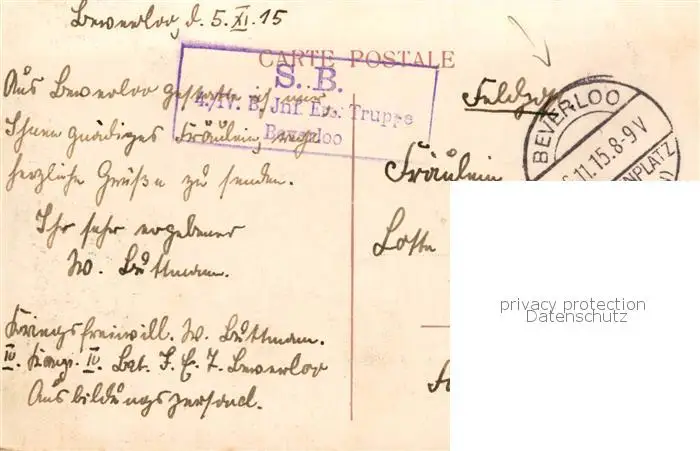 Beverloo, d. 5. XI. 15
CARTE POSTALE
S. B.
4./IV. B. Jnf. Ers. Truppe
Beverloo
Aus Beverloo gestatte ich mir
Ihnen gnädiges Fräulein, recht
herzliche Grüße zu senden.
Ihr sehr ergebener
W. Büttmann.
Kriegsfreiwill. W. Büttmann.
IV. Komp. IV. Bat. I. E. T. Beverloo
Ausbildungspersonal.
Feldpost
BEVERLOO
11.15.8-9V
Fräulein
Lotte
privacy protection
Datenschutz